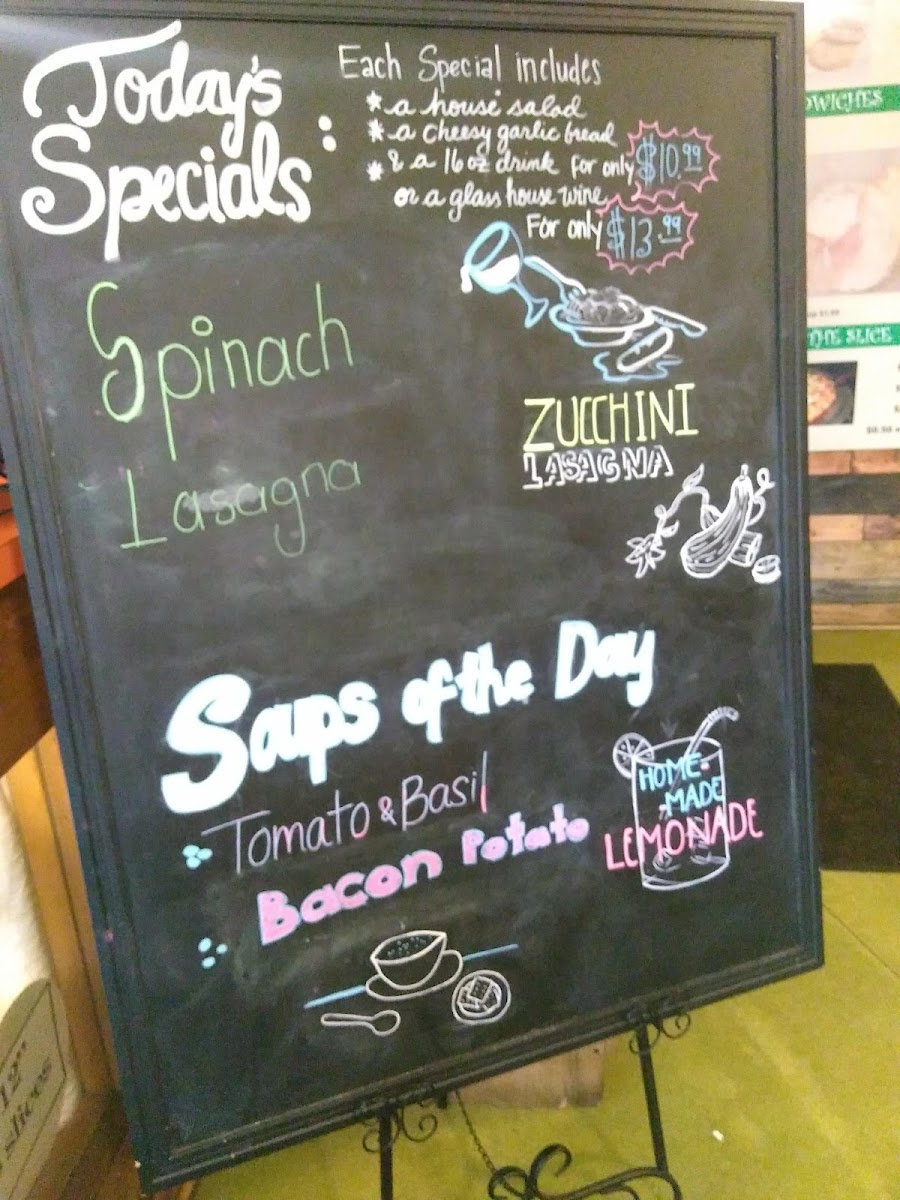 Today's
Specials :
Each Special includes
* a house salad
* a cheesy garlic bread
* & a 16 oz drink for only $10.99
or a glass house wine
For only $13.99
Spinach
Lasagna
ZUCCHINI
LASAGNA
Soups of the Day
Tomato & Basil
Bacon Potato
HOME-
MADE
LEMONADE
THE SLICE
12"
slices